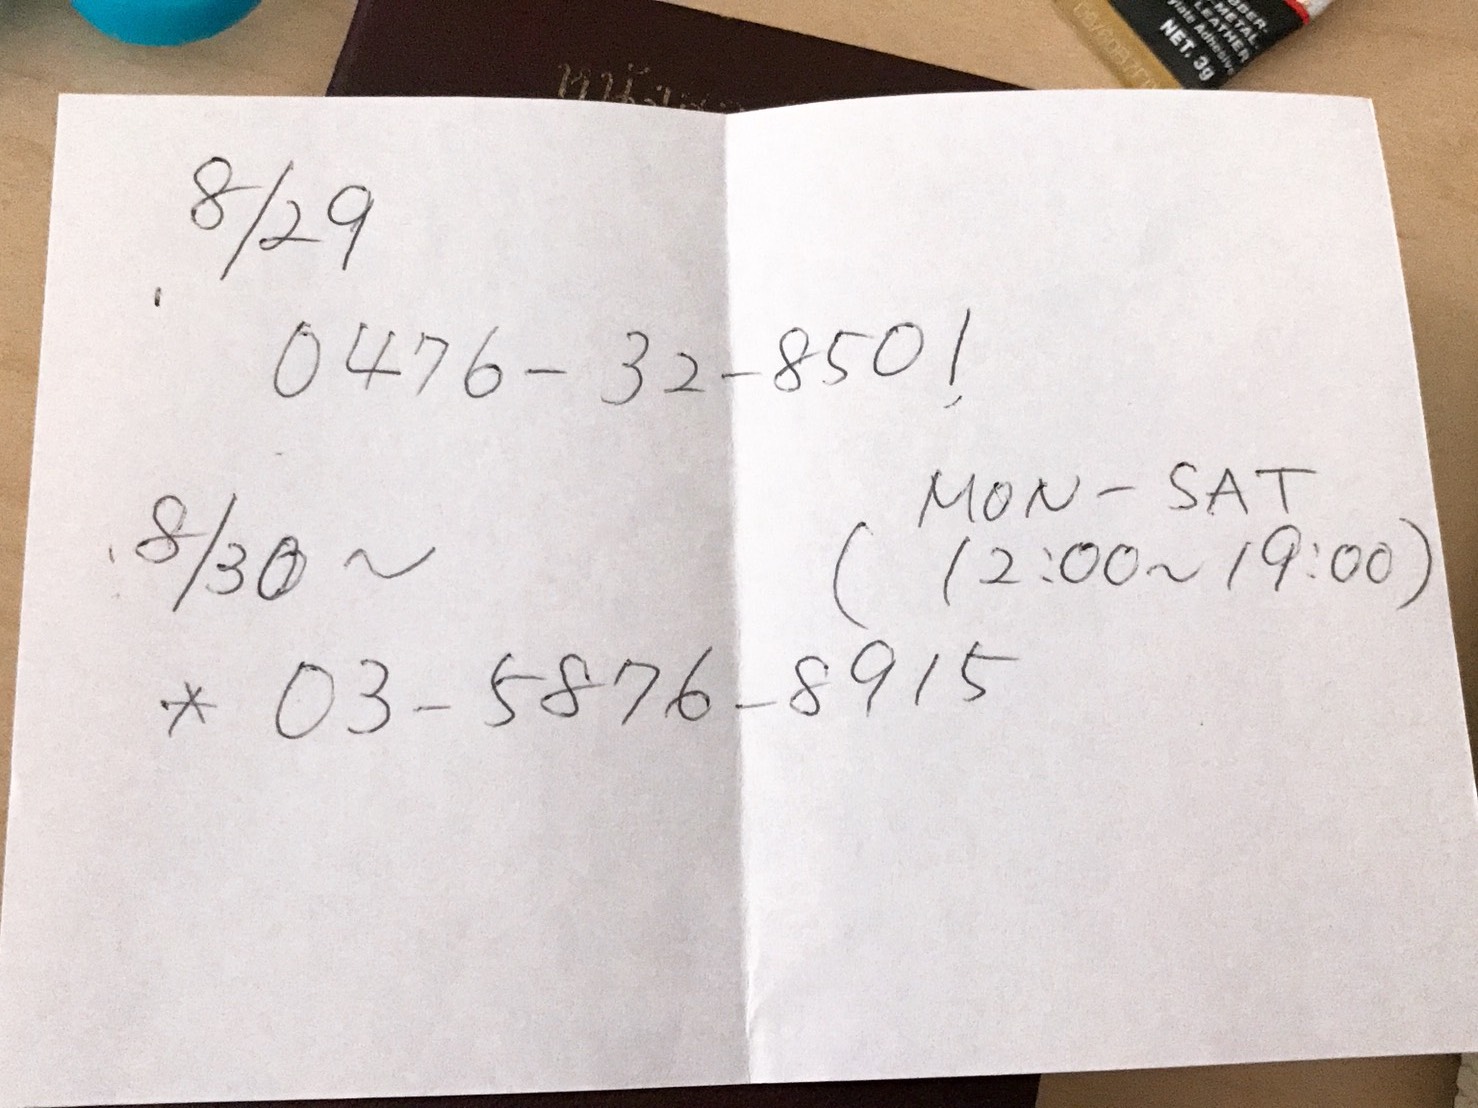 RUBBER
METAL
LEATHER
NET. 3g
8/29
0476-32-8501
8/30~
MON-SAT
(12:00~19:00)
* 03-5876-8915